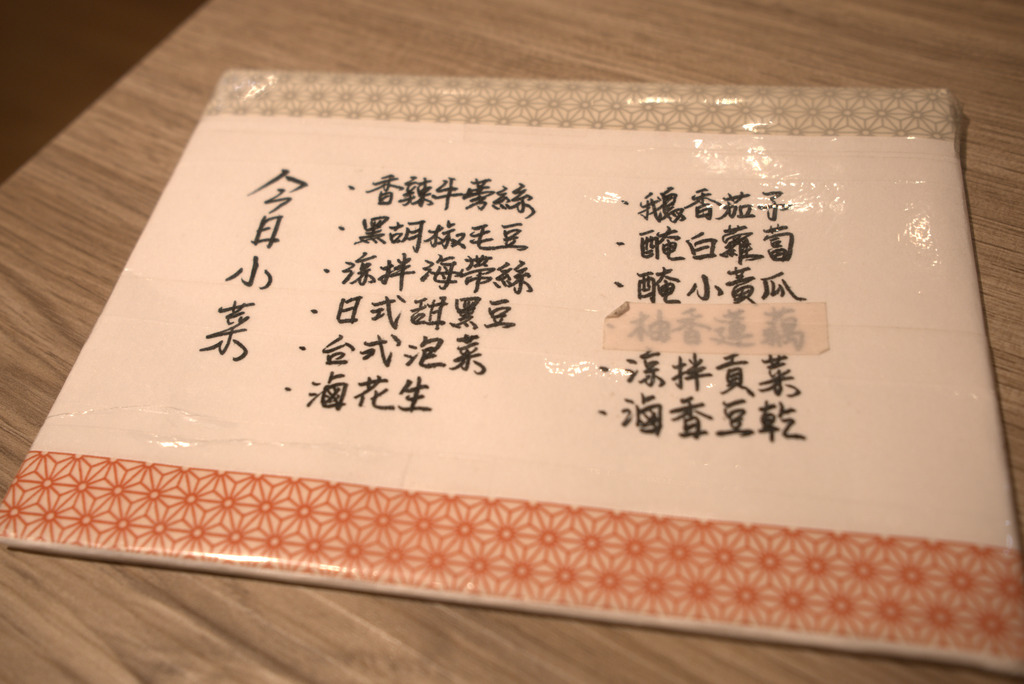 今日小菜
·香辣牛蒡絲
·黑胡椒毛豆
·涼拌海帶絲
·日式甜黑豆
·台式泡菜
·滷花生
·鵝香茄子
·醃白蘿蔔
·醃小黃瓜
·柚香蓮藕
·涼拌貢菜
·滷香豆乾